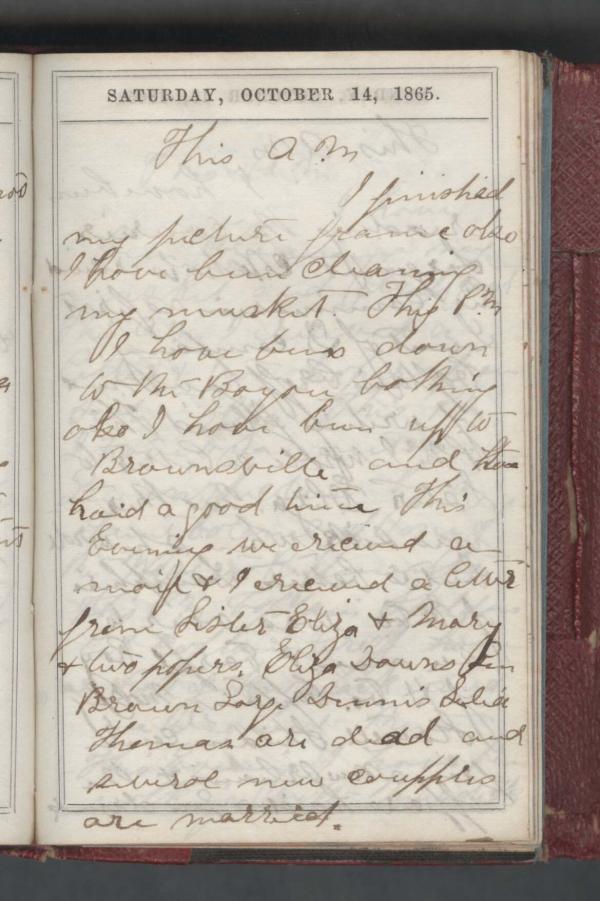 SATURDAY, OCTOBER 14, 1865.
This A M
I finished
my picture frame also
I have been cleaning
my musket. This P.M
I have been down
to the Bayou bathing
also I have been up to
Brownsville and
had a good time This
Evening we recieved a
mail & I recieved a letter
from Sister Eliza & Mary
& two papers. Eliza Downs
Brown Dennis
Thomas are dead and
several new coupples
are married.